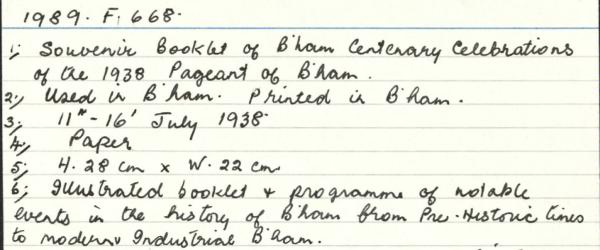 1989. F. 668.
1; Souvenir Booklet of B'ham Centenary Celebrations
of the 1938 Pageant of B'ham.
2; Used in B'ham. Printed in B'ham.
3; 11" - 16' July 1938.
4; Paper
5; H. 28 cm x W. 22 cm
6; Illustrated booklet & programme of notable
events in the history of B'ham from Pre-Historic times
to modern Industrial B'ham.